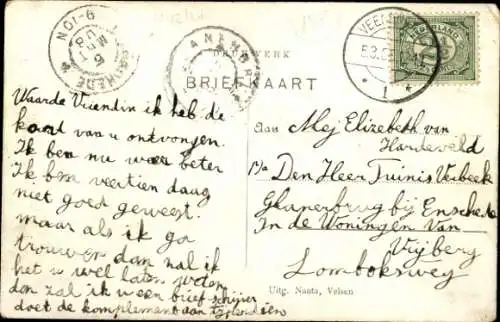 DRUKWERK
BRIEFKAART
NEDERLAND
Waarde Vriendin ik heb de
kaart van u ontvangen.
Ik ben nu weer beter
Ik ben veertien daag
niet goed geweest.
maar als ik ga
trouwen dan zal ik
het u wel laten weten
dan zal ik u een brief schrijven
doet de komplement aan
Aan Mej Elizabeth van
Hardeveld
p/a Den Heer Tuinis Verbeek
Glanerbrug bij Enschede
In de Woningen van
Vrijberg
Lomboksweg
Uitg. Nanta, Velsen